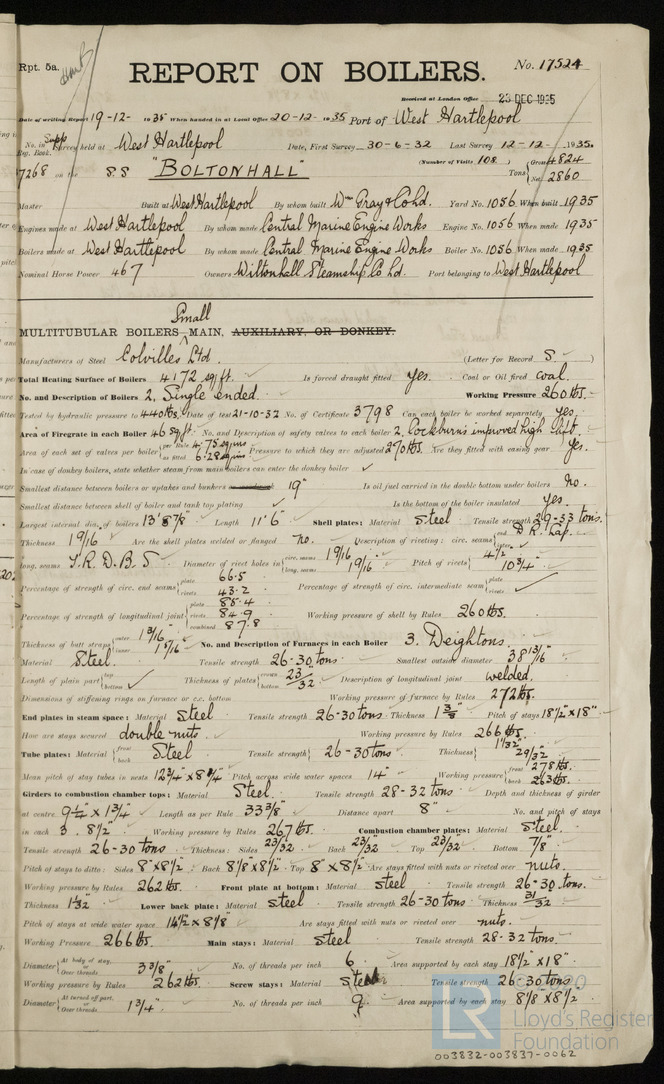 Rpt. 5a.
REPORT ON BOILERS.
No. 17524
Received at London Office 23 DEC 1935
Date of writing Report 19-12- 1935 When handed in at Local Office 20-12-1935 Port of West Hartlepool
No. in Survey held at West Hartlepool Date, First Survey 30-6-32 Last Survey 12-12- 1935.
Reg. Book. (Number of Visits 108)
7268 on the S.S "BOLTONHALL" Tons Gross 4824 Net 2860
Master Built at West Hartlepool By whom built Wm Gray & Co Ld. Yard No. 1056 When built 1935
Engines made at West Hartlepool By whom made Central Marine Engine Works Engine No. 1056 When made 1935
Boilers made at West Hartlepool By whom made Central Marine Engine Works Boiler No. 1056 When made 1935
Nominal Horse Power 467 Owners Wiltonhall Steamship Co Ld. Port belonging to West Hartlepool
Small
MULTITUBULAR BOILERS MAIN, AUXILIARY, OR DONKEY.
Manufacturers of Steel Colvilles Ltd. (Letter for Record S.)
Total Heating Surface of Boilers 4172 sq ft. Is forced draught fitted yes. Coal or Oil fired coal.
No. and Description of Boilers 2, Single ended. Working Pressure 260 lbs.
Tested by hydraulic pressure to 440 lbs. Date of test 21-10-32 No. of Certificate 3798 Can each boiler be worked separately yes.
Area of Firegrate in each Boiler 46 sq ft. No. and Description of safety valves to each boiler 2, Cockburns improved high lift.
Area of each set of valves per boiler per Rule 4.75 sq ins as fitted 6.28 sq ins Pressure to which they are adjusted 270 lbs. Are they fitted with easing gear yes.
In case of donkey boilers, state whether steam from main boilers can enter the donkey boiler
Smallest distance between boilers or uptakes and bunkers 19" Is oil fuel carried in the double bottom under boilers no.
Smallest distance between shell of boiler and tank top plating Is the bottom of the boiler insulated yes.
Largest internal dia. of boilers 13' 8 7/8" Length 11' 6" Shell plates: Material Steel Tensile strength 29-33 tons.
Thickness 1 9/16 Are the shell plates welded or flanged no. Description of riveting: circ. seams end D.R. Lap. inter
long. seams T.R.D.B.S Diameter of rivet holes in circ. seams 1 9/16 long. seams 1 9/16 Pitch of rivets 4 1/2" 10 3/4
Percentage of strength of circ. end seams plate 66.5 rivets 43.2 Percentage of strength of circ. intermediate seam plate rivets
Percentage of strength of longitudinal joint plate 85.4 rivets 84.9 combined 87.8 Working pressure of shell by Rules 260 lbs.
Thickness of butt straps outer 1 3/16 inner 1 5/16 No. and Description of Furnaces in each Boiler 3. Deightons.
Material Steel. Tensile strength 26-30 tons Smallest outside diameter 38 13/16"
Length of plain part top bottom Thickness of plates crown bottom 23/32 Description of longitudinal joint welded.
Dimensions of stiffening rings on furnace or c.c. bottom Working pressure of furnace by Rules 272 lbs.
End plates in steam space: Material Steel Tensile strength 26-30 tons Thickness 1 3/8" Pitch of stays 18 1/2" x 18"
How are stays secured double nuts. Working pressure by Rules 266 lbs.
Tube plates: Material front back Steel Tensile strength 26-30 tons Thickness 1 1/32 29/32"
Mean pitch of stay tubes in nests 12 3/4" x 8 3/4" Pitch across wide water spaces 14" Working pressure front 278 lbs. back 263 lbs.
Girders to combustion chamber tops: Material Steel. Tensile strength 28-32 tons Depth and thickness of girder
at centre 9 1/4" x 1 3/4" Length as per Rule 33 3/8" Distance apart 8" No. and pitch of stays
in each 3. 8 1/2" Working pressure by Rules 267 lbs. Combustion chamber plates: Material Steel.
Tensile strength 26-30 tons Thickness: Sides 23/32 Back 23/32 Top 23/32 Bottom 7/8"
Pitch of stays to ditto: Sides 8" x 8 1/2" Back 8 1/8 x 8 1/2" Top 8" x 8 1/2" Are stays fitted with nuts or riveted over nuts.
Working pressure by Rules 262 lbs. Front plate at bottom: Material steel Tensile strength 26-30 tons.
Thickness 1 1/32" Lower back plate: Material steel Tensile strength 26-30 tons Thickness 31/32
Pitch of stays at wide water space 14 1/2" x 8 1/8" Are stays fitted with nuts or riveted over nuts.
Working Pressure 266 lbs. Main stays: Material steel Tensile strength 28-32 tons
Diameter At body of stay, or Over threads. 3 3/8" No. of threads per inch 6. Area supported by each stay 18 1/2 x 18"
Working pressure by Rules 262 lbs. Screw stays: Material steel Tensile strength 26-30 tons
Diameter At turned off part, or Over threads. 1 3/4" No. of threads per inch 9. Area supported by each stay 8 1/8 x 8 1/2
© 2020
LR
Lloyd's Register
Foundation
003832-003837-0062